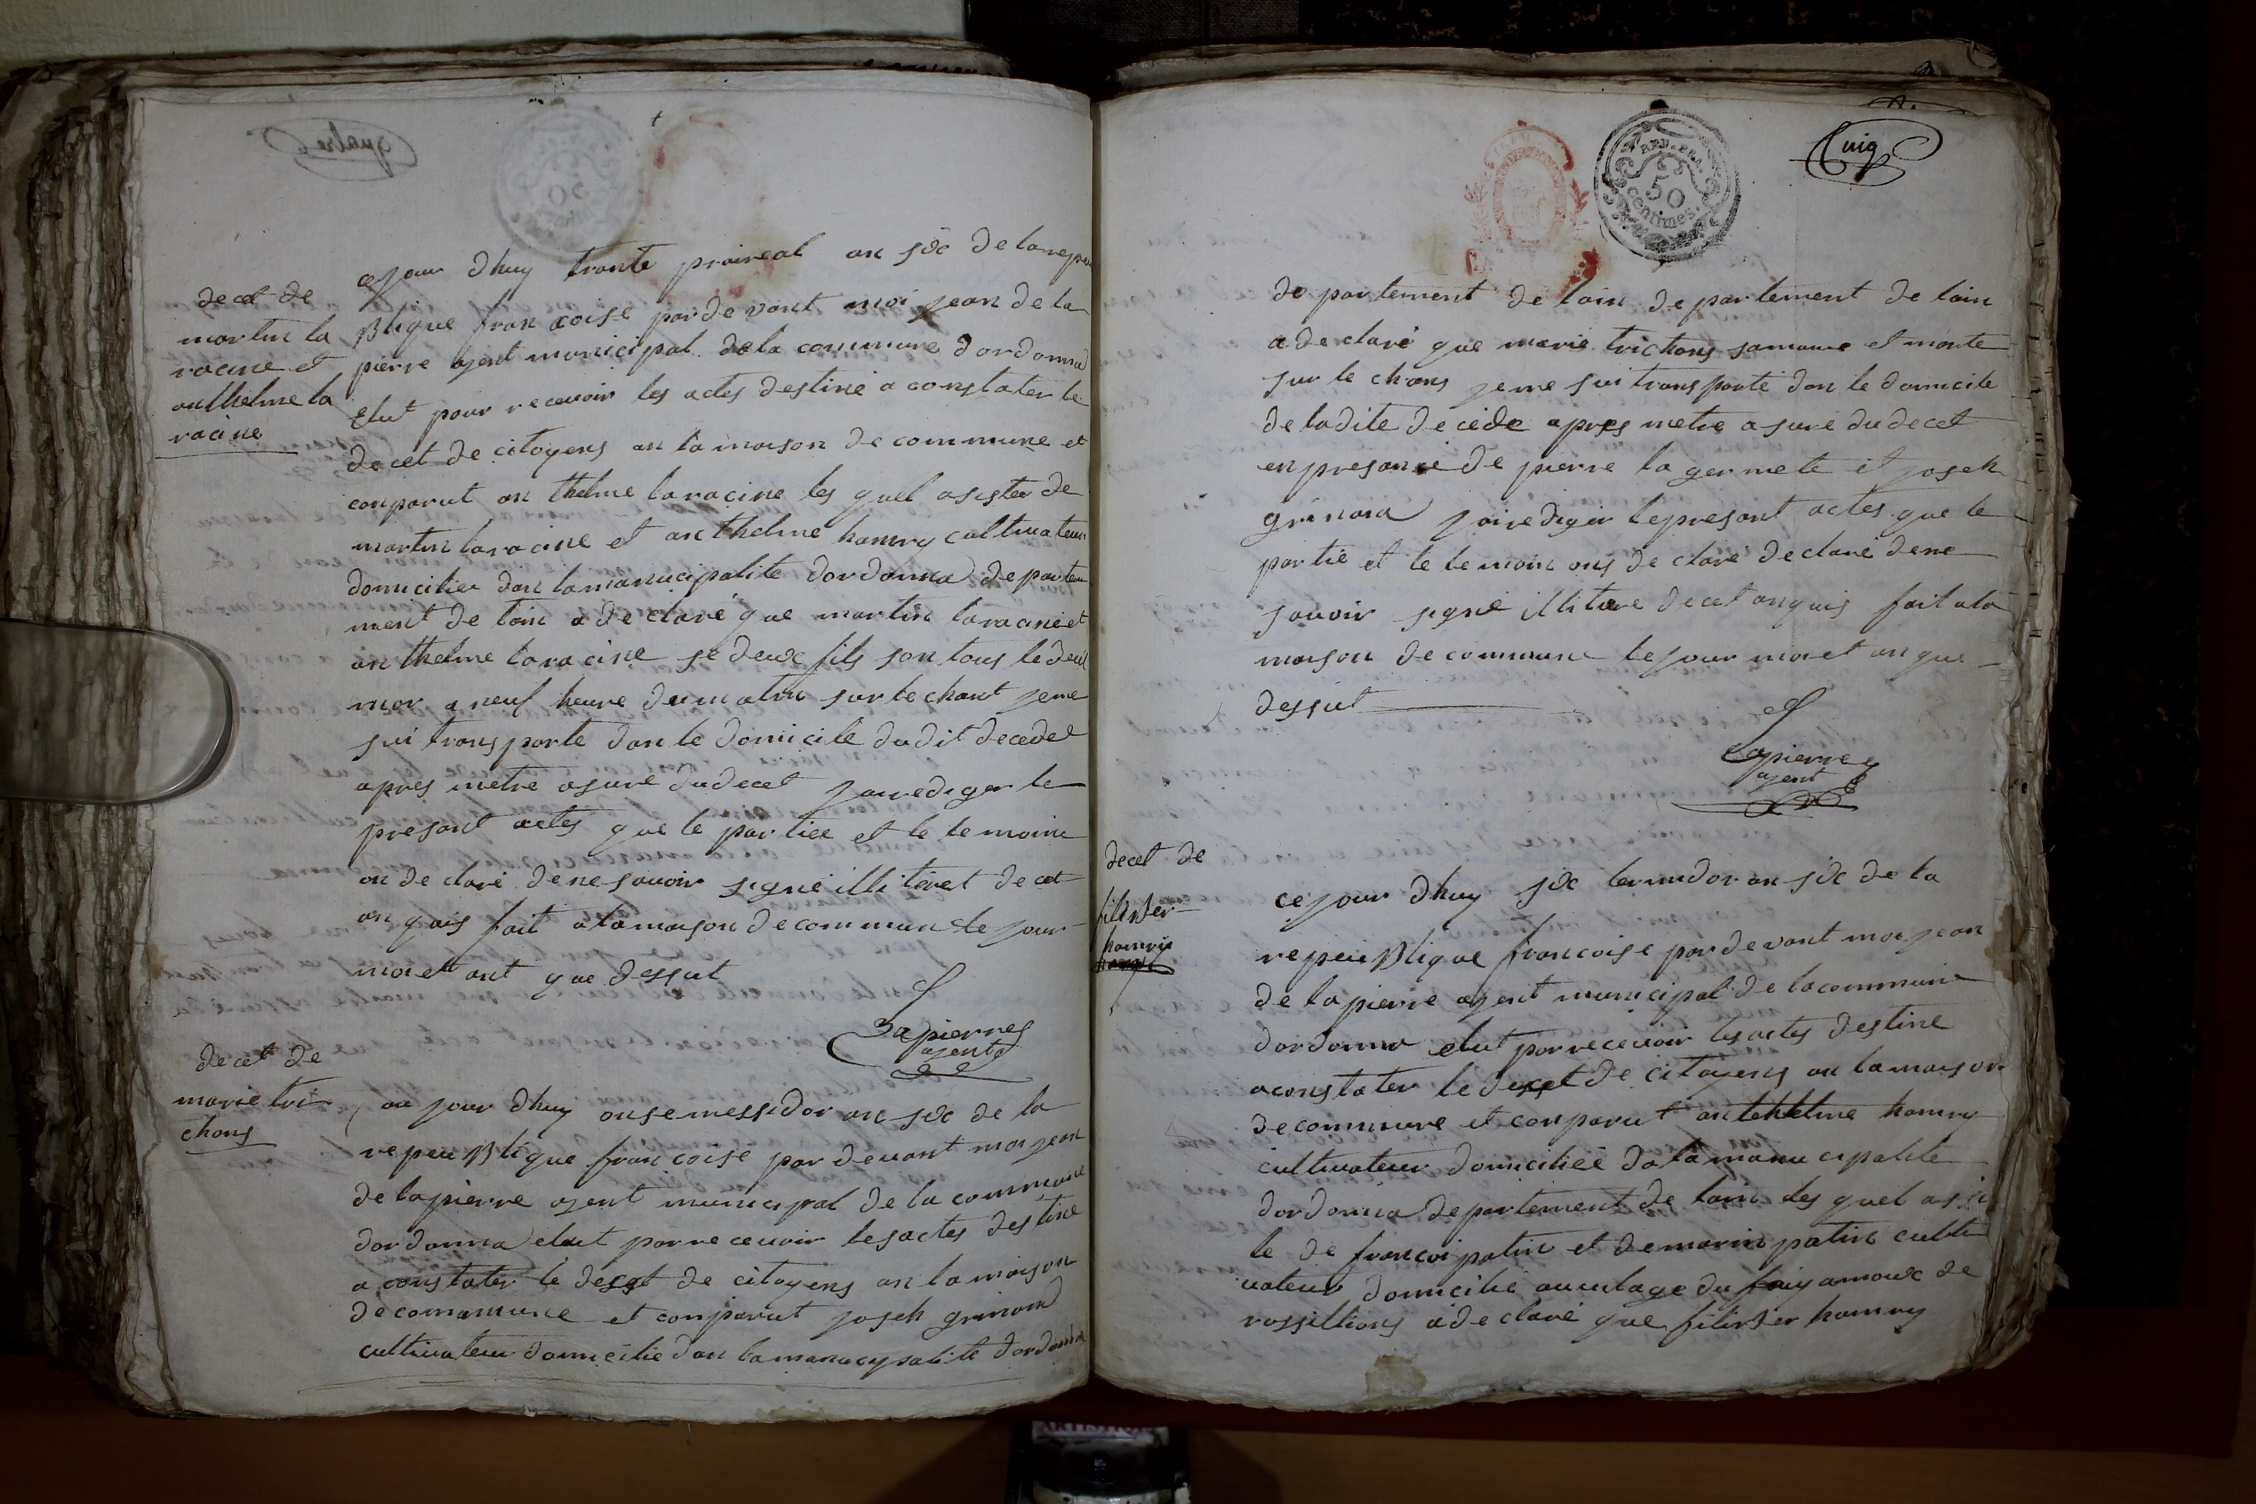 decet de
martin la
racine et
anthelme la
racine
ce jour dhuy trante praireal an six de la repu
Blique francoise pardevant moi jean de la
pierre agent municipal de la commune dordonna
elut pour recevoir les actes destiné a constater le
decet de citoyens an la maison de commune et
conparut an thelme la racine les quel asister de
martin laracine et anthelme hamry cultivateur
domicilier dan la manucipalite dordonna departe
ment de lain a de claré que martin laracine et
an thelme la racine se deux fils son tous le deux
mor a neuf heure du matin sur le chant jeme
sui transporte dan le domicile dudit decedee
apres metre asure dudecet jairediger le
presant actes que le partiee et le temoin
on de claré de ne savoir signé illiteret decet
an quis fait a la maison de commun le jour
moi et ant que dessut
Lapierre
agent
decet de
marie tri
chons
au jour dhuy onse messidor an six de la
repeu Blique francoise par devant moi jean
de lapierre agent municipal de la commune
dordonna elut par recevoir les actes destine
a constater le decet de citoyens an la maison
de commune et conparut joseh grinand
cultivateur domicilié dan la manucypalité dordonna
Cinq
REP. FRA.
50
centimes.
de partement de lain de partement de lain
a de claré que marie trichons samame et morte
sur le chans jeme sui transporté dan le domicile
de ladite decede apres metre asuré du decet
en presance de pierre la germete et joseh
grinand jairedigér le presant actes que le
partie et le temoin ons de clare declare dene
savoir signé illitere decet anquis fait a la
maison de commune le jour moi et an que
dessut
Lapierre
agent
decet de
filiBer
hamry
ce jour dhuy six termidor an six de la
repeu Blique francoise par devant moi jean
de la pierre agent municipal de la commune
dordonna elut par recevoir les actes destine
a constater le decet de citoyens an la maison
de commune et conparut antehelme hamry
cultivateur domiciliée da la manucipalite
dordonna departement de lain les quel asis
te de francoi patin et demarin patin culti
vateur domicilié au vilage du fay amoux de
rossillions a de claré que filiBer hamry